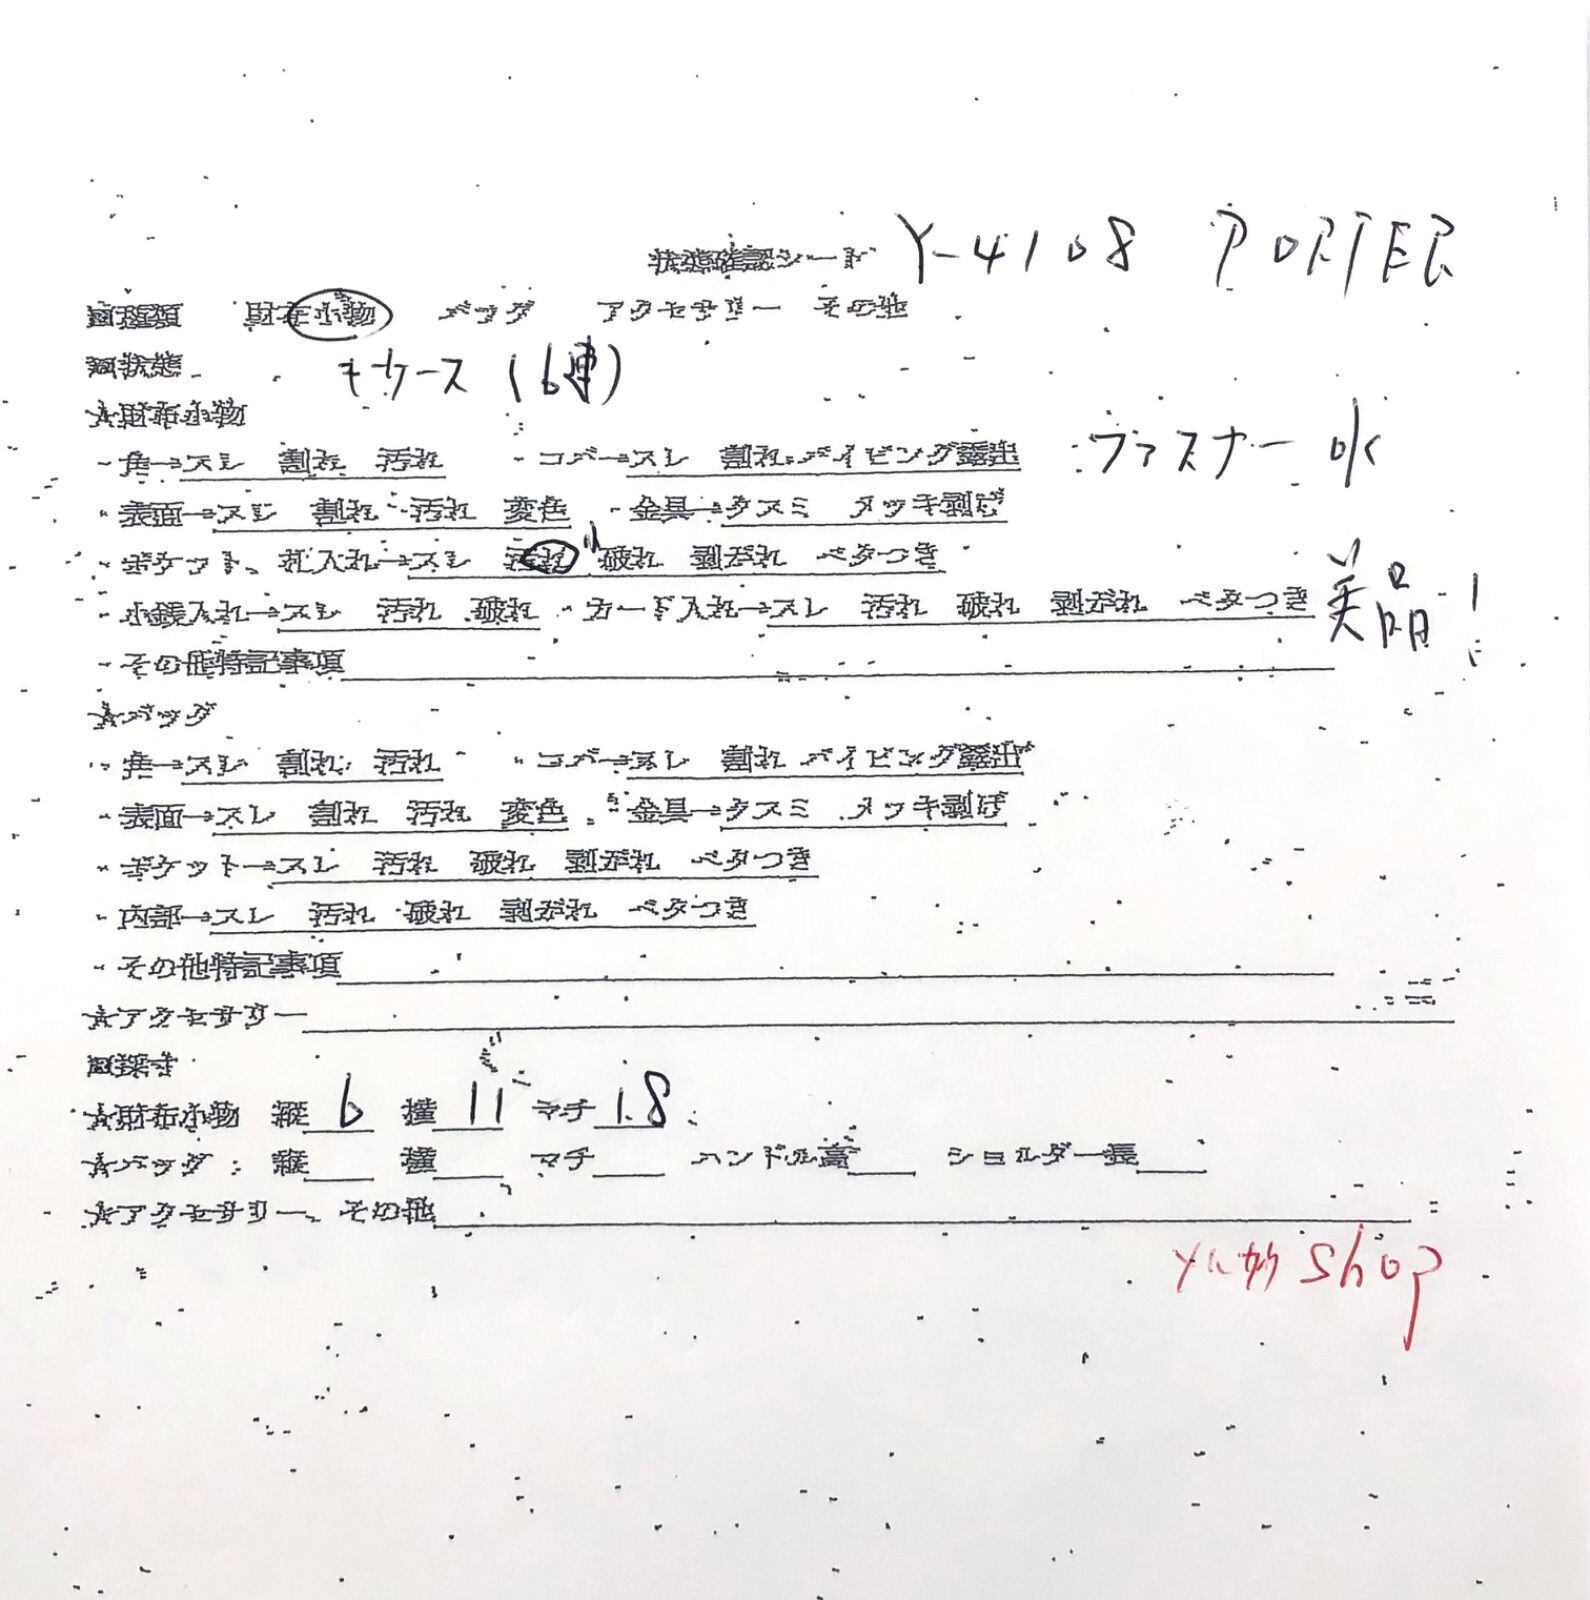 状態確認シート Y-4108 PORTER
■種類 財布小物 バッグ アクセサリー その他
■状態 キーケース(6連)
★財布小物
・角→スレ 割れ 汚れ ・コバ→スレ 割れ パイピング露出 ファスナー ok
・表面→スレ 割れ 汚れ 変色 ・金具→クスミ メッキ剥げ
・ポケット、札入れ→スレ 汚れ 小 破れ 剥がれ ベタつき
・小銭入れ→スレ 汚れ 破れ ・カード入れ→スレ 汚れ 破れ 剥がれ ベタつき 美品!
・その他特記事項
★バッグ
・角→スレ 割れ 汚れ ・コバ→スレ 割れ パイピング露出
・表面→スレ 割れ 汚れ 変色 ・金具→クスミ メッキ剥げ
・ポケット→スレ 汚れ 破れ 剥がれ ベタつき
・内部→スレ 汚れ 破れ 剥がれ ベタつき
・その他特記事項
★アクセサリー
■採寸
★財布小物 縦 6 横 11 マチ 1.8
★バッグ:縦 横 マチ ハンドル高 ショルダー長
★アクセサリー、その他
shop